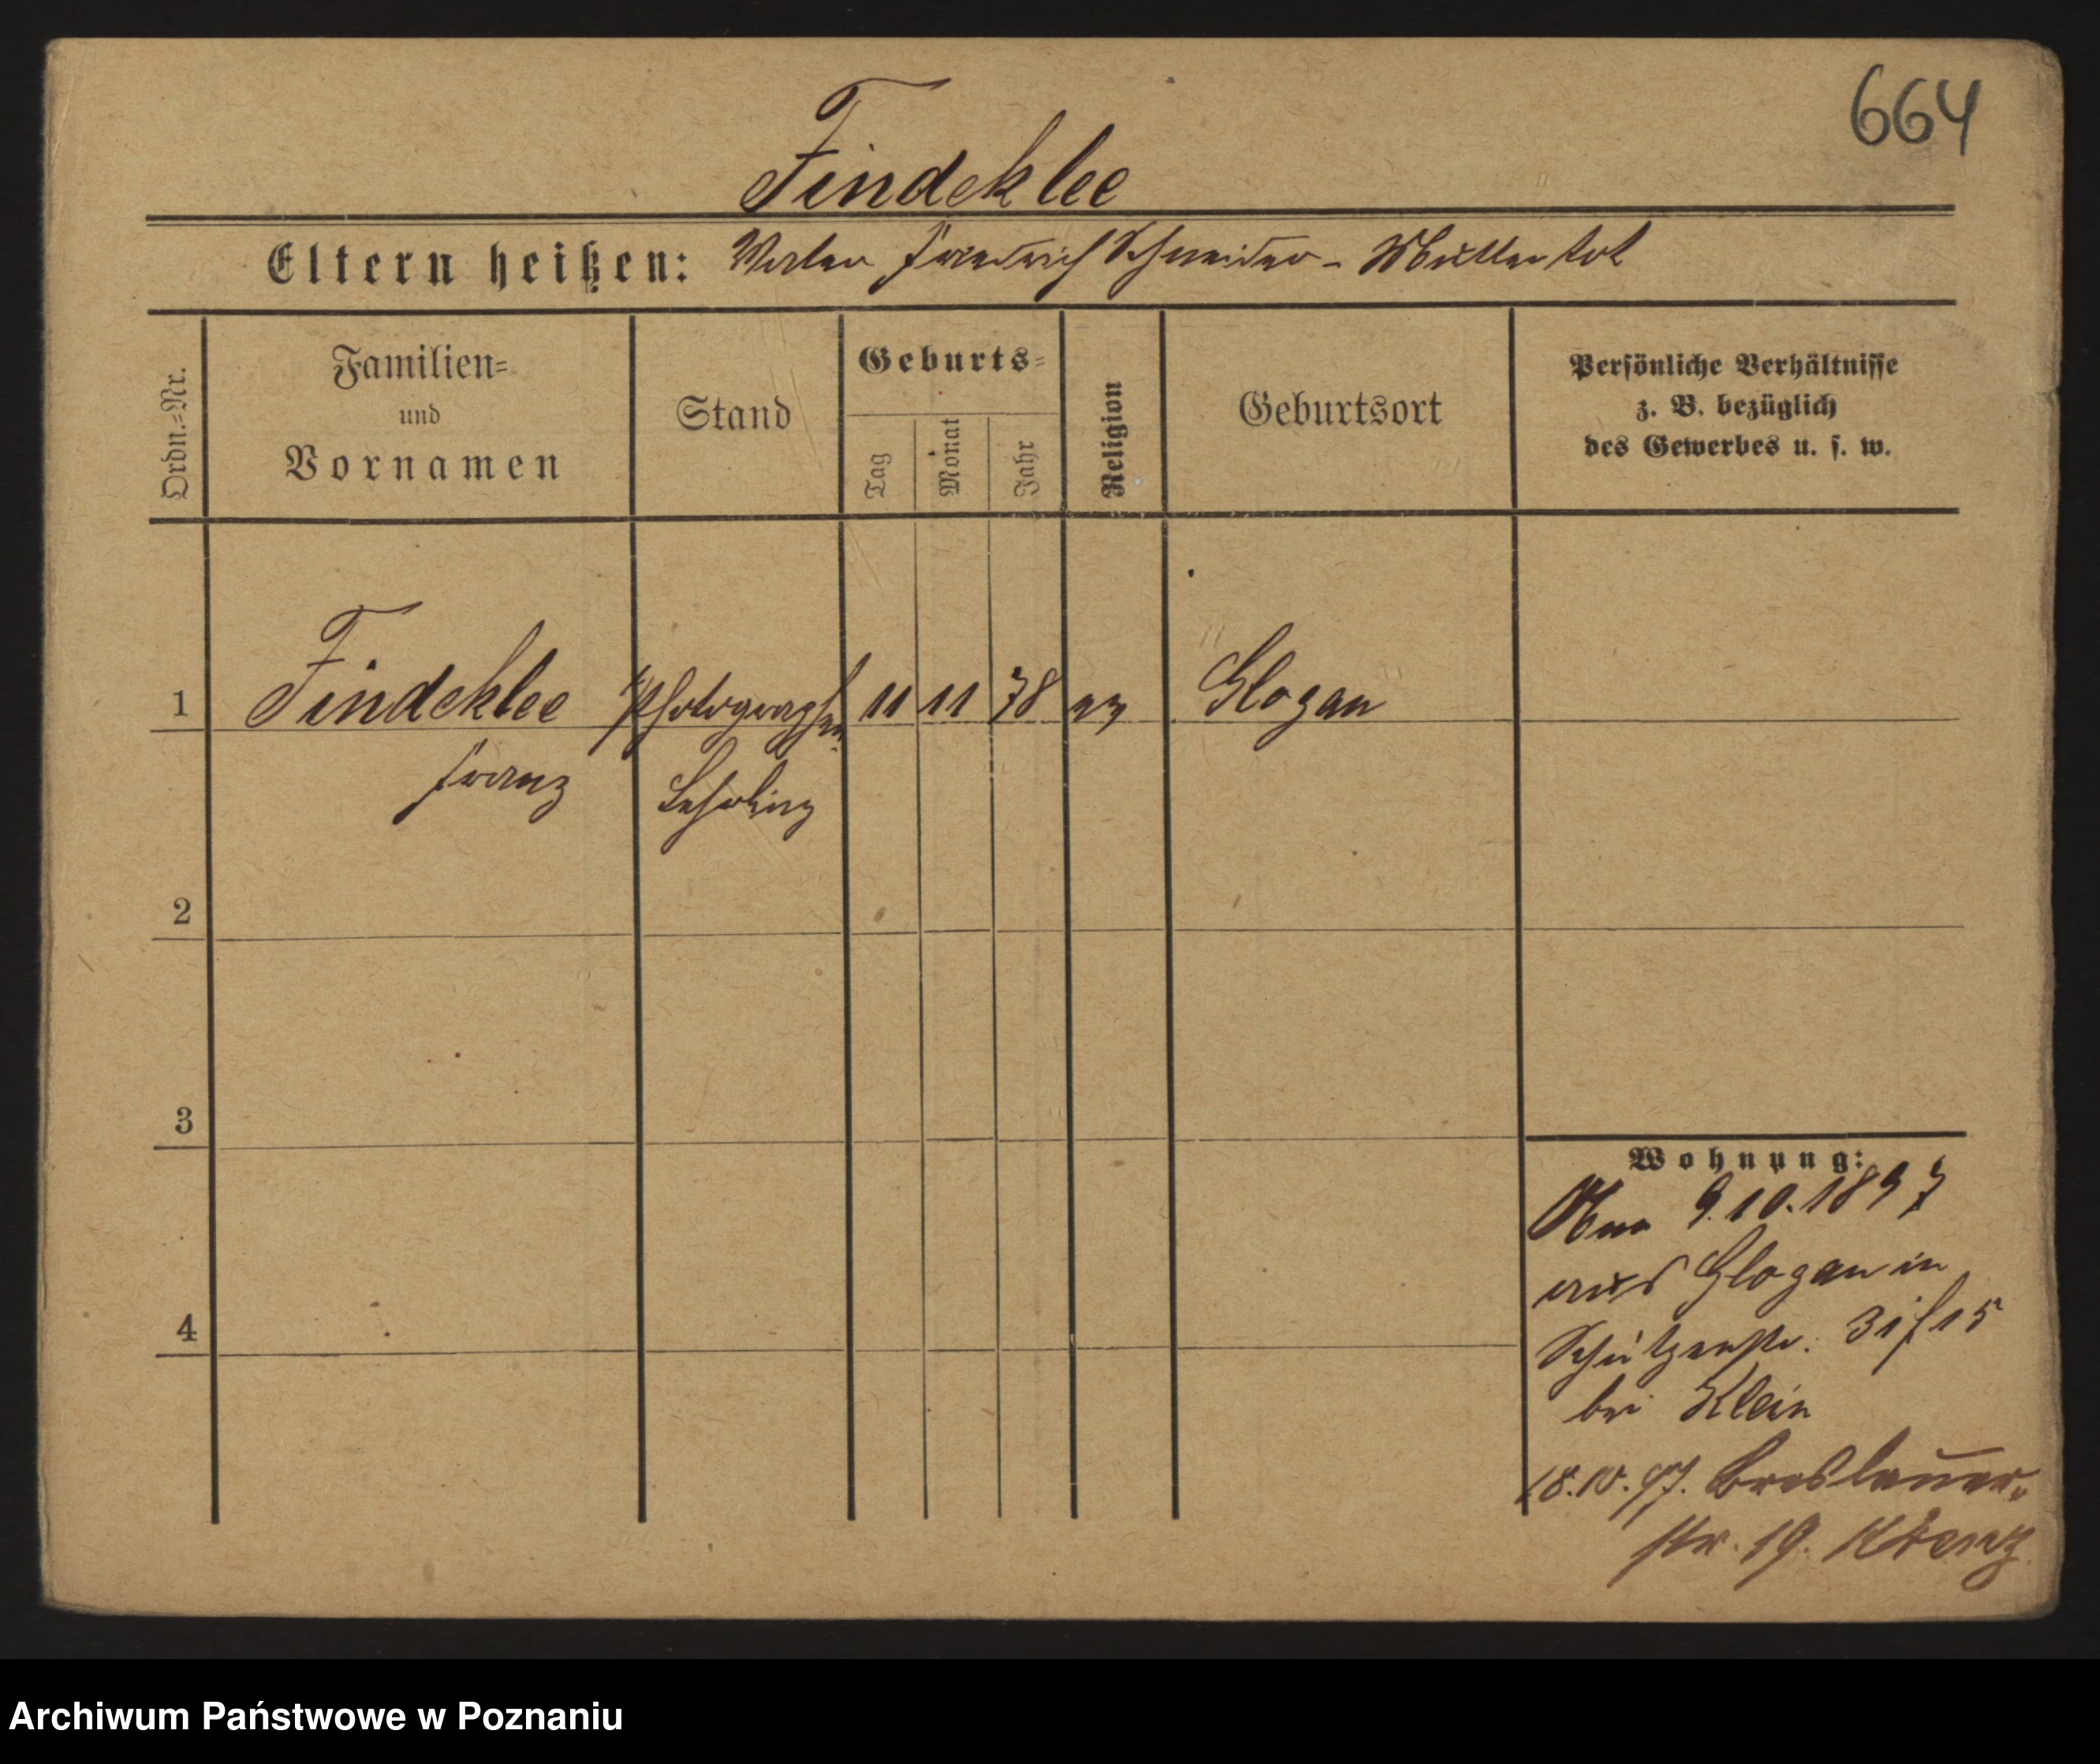 664
Findeklee
Eltern heißen: Vater Friedrich Schneider - Mutter tot
Ordn.=Nr.
Familien=
und
Vornamen
Stand
Geburts=
Tag
Monat
Jahr
Religion
Geburtsort
Persönliche Verhältnisse
z. B. bezüglich
des Gewerbes u. s. w.
1 Findeklee Photographen 11 11 78 ev Glogau
Franz Lehrling
2
3
4
Wohnung:
9.10.1897
aus Glogau in
Schützenstr. 31
bei Klein
18.10.97. Breslauer-
str. 19.
Archiwum Państwowe w Poznaniu